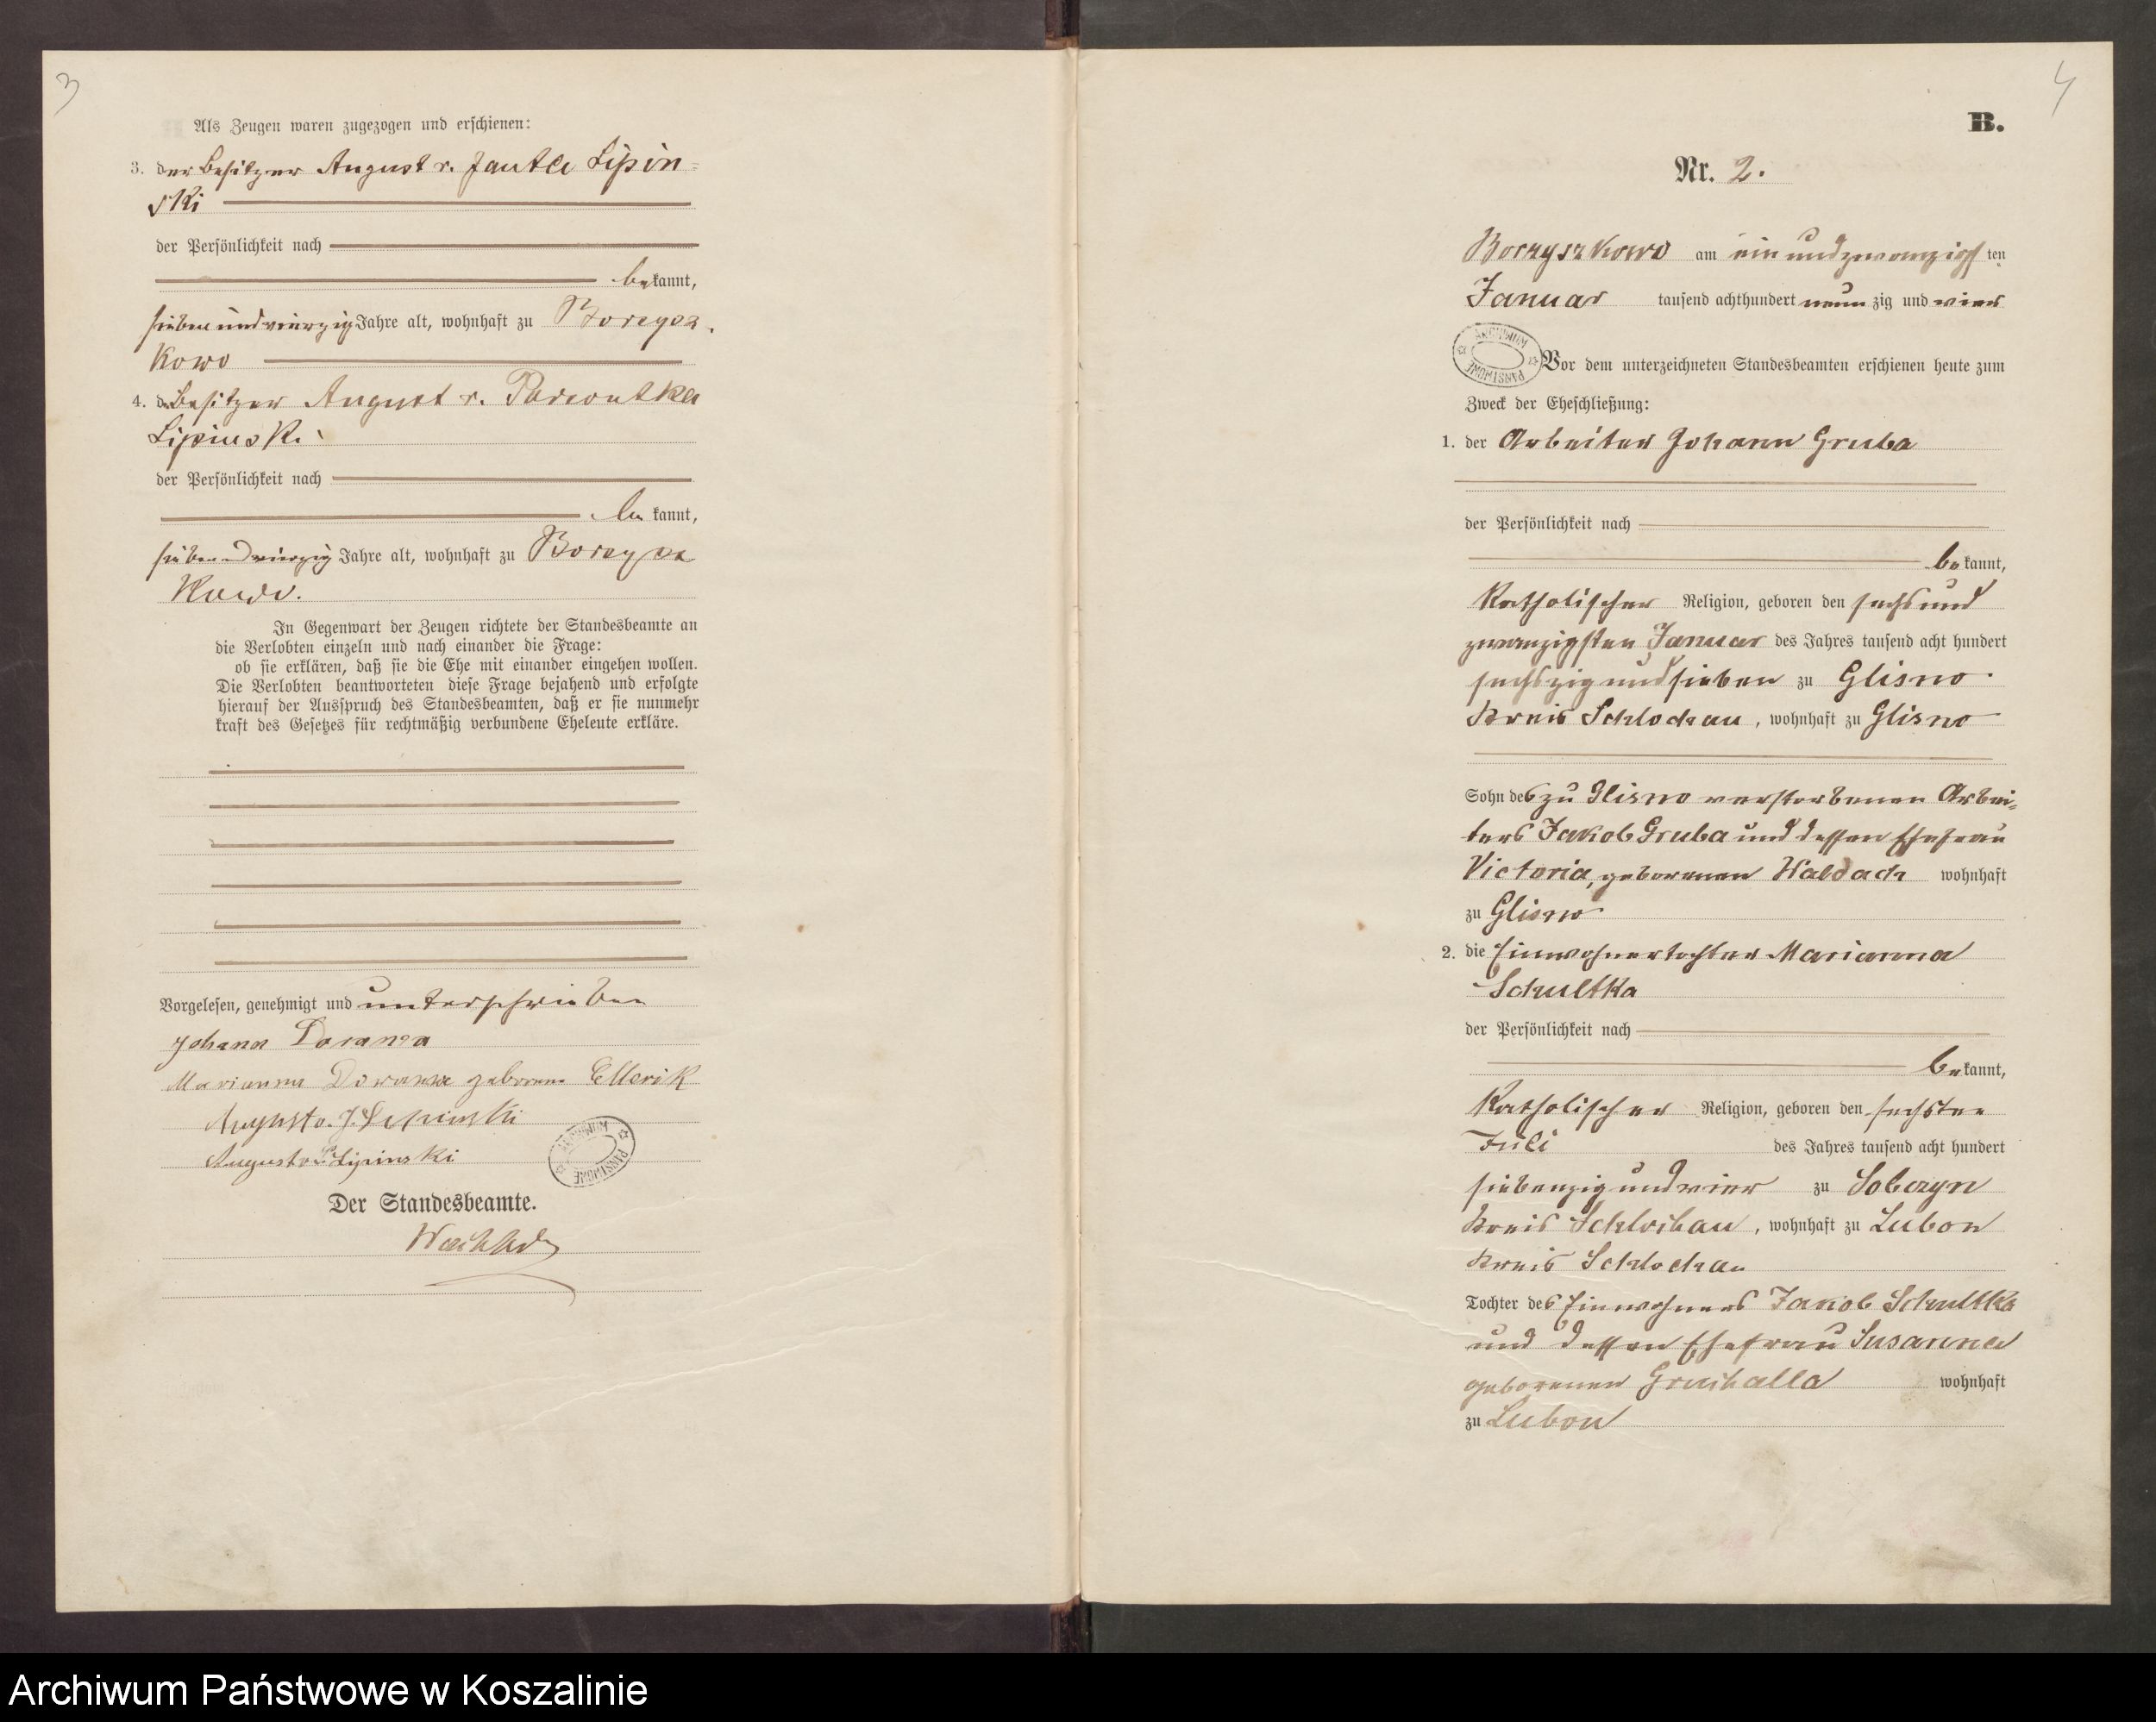 3
Als Zeugen waren zugezogen und erschienen:
3. der Besitzer August v. Jantta Lipin-
ski
der Persönlichkeit nach
bekannt,
siebenundvierzig Jahre alt, wohnhaft zu Borzysz-
kowo
4. der Besitzer August v. Lipinski
der Persönlichkeit nach
bekannt,
siebenundvierzig Jahre alt, wohnhaft zu Borzysz
kowo.
In Gegenwart der Zeugen richtete der Standesbeamte an
die Verlobten einzeln und nach einander die Frage:
ob sie erklären, daß sie die Ehe mit einander eingehen wollen.
Die Verlobten beantworteten diese Frage bejahend und erfolgte
hierauf der Ausspruch des Standesbeamten, daß er sie nunmehr
kraft des Gesetzes für rechtmäßig verbundene Eheleute erkläre.
Vorgelesen, genehmigt und unterschrieben
Johann Dorawa
Marianna Dorawa geborene Ellerik
August v. J. Lipinski
August v. P. Lipinski
ARCHIWUM PAŃSTWOWE
Der Standesbeamte.
4
B.
Nr. 2.
Borzyszkowo am ein und zwanzigsten
Januar tausend achthundert neunzig und vier
ARCHIWUM PAŃSTWOWE
Vor dem unterzeichneten Standesbeamten erschienen heute zum
Zweck der Eheschließung:
1. der Arbeiter Johann Gruba
der Persönlichkeit nach
bekannt,
Katholischer Religion, geboren den sechs und
zwanzigsten Januar des Jahres tausend acht hundert
sechszig und sieben zu Glisno
Kreis Schlochau, wohnhaft zu Glisno
Sohn des zu Glisno verstorbenen Arbei-
ters Jakob Gruba und dessen Ehefrau
Victoria, geborenen Waldach wohnhaft
zu Glisno
2. die Einwohnertochter Marianna
Schultka
der Persönlichkeit nach
bekannt,
Katholischer Religion, geboren den sechsten
Juli des Jahres tausend acht hundert
siebenzig und vier zu Sobczyn
Kreis Schlochau, wohnhaft zu Lubon
Kreis Schlochau
Tochter des Einwohners Jakob Schultka
und dessen Ehefrau Susanna
geborenen Gruchalla wohnhaft
zu Lubon
Archiwum Państwowe w Koszalinie